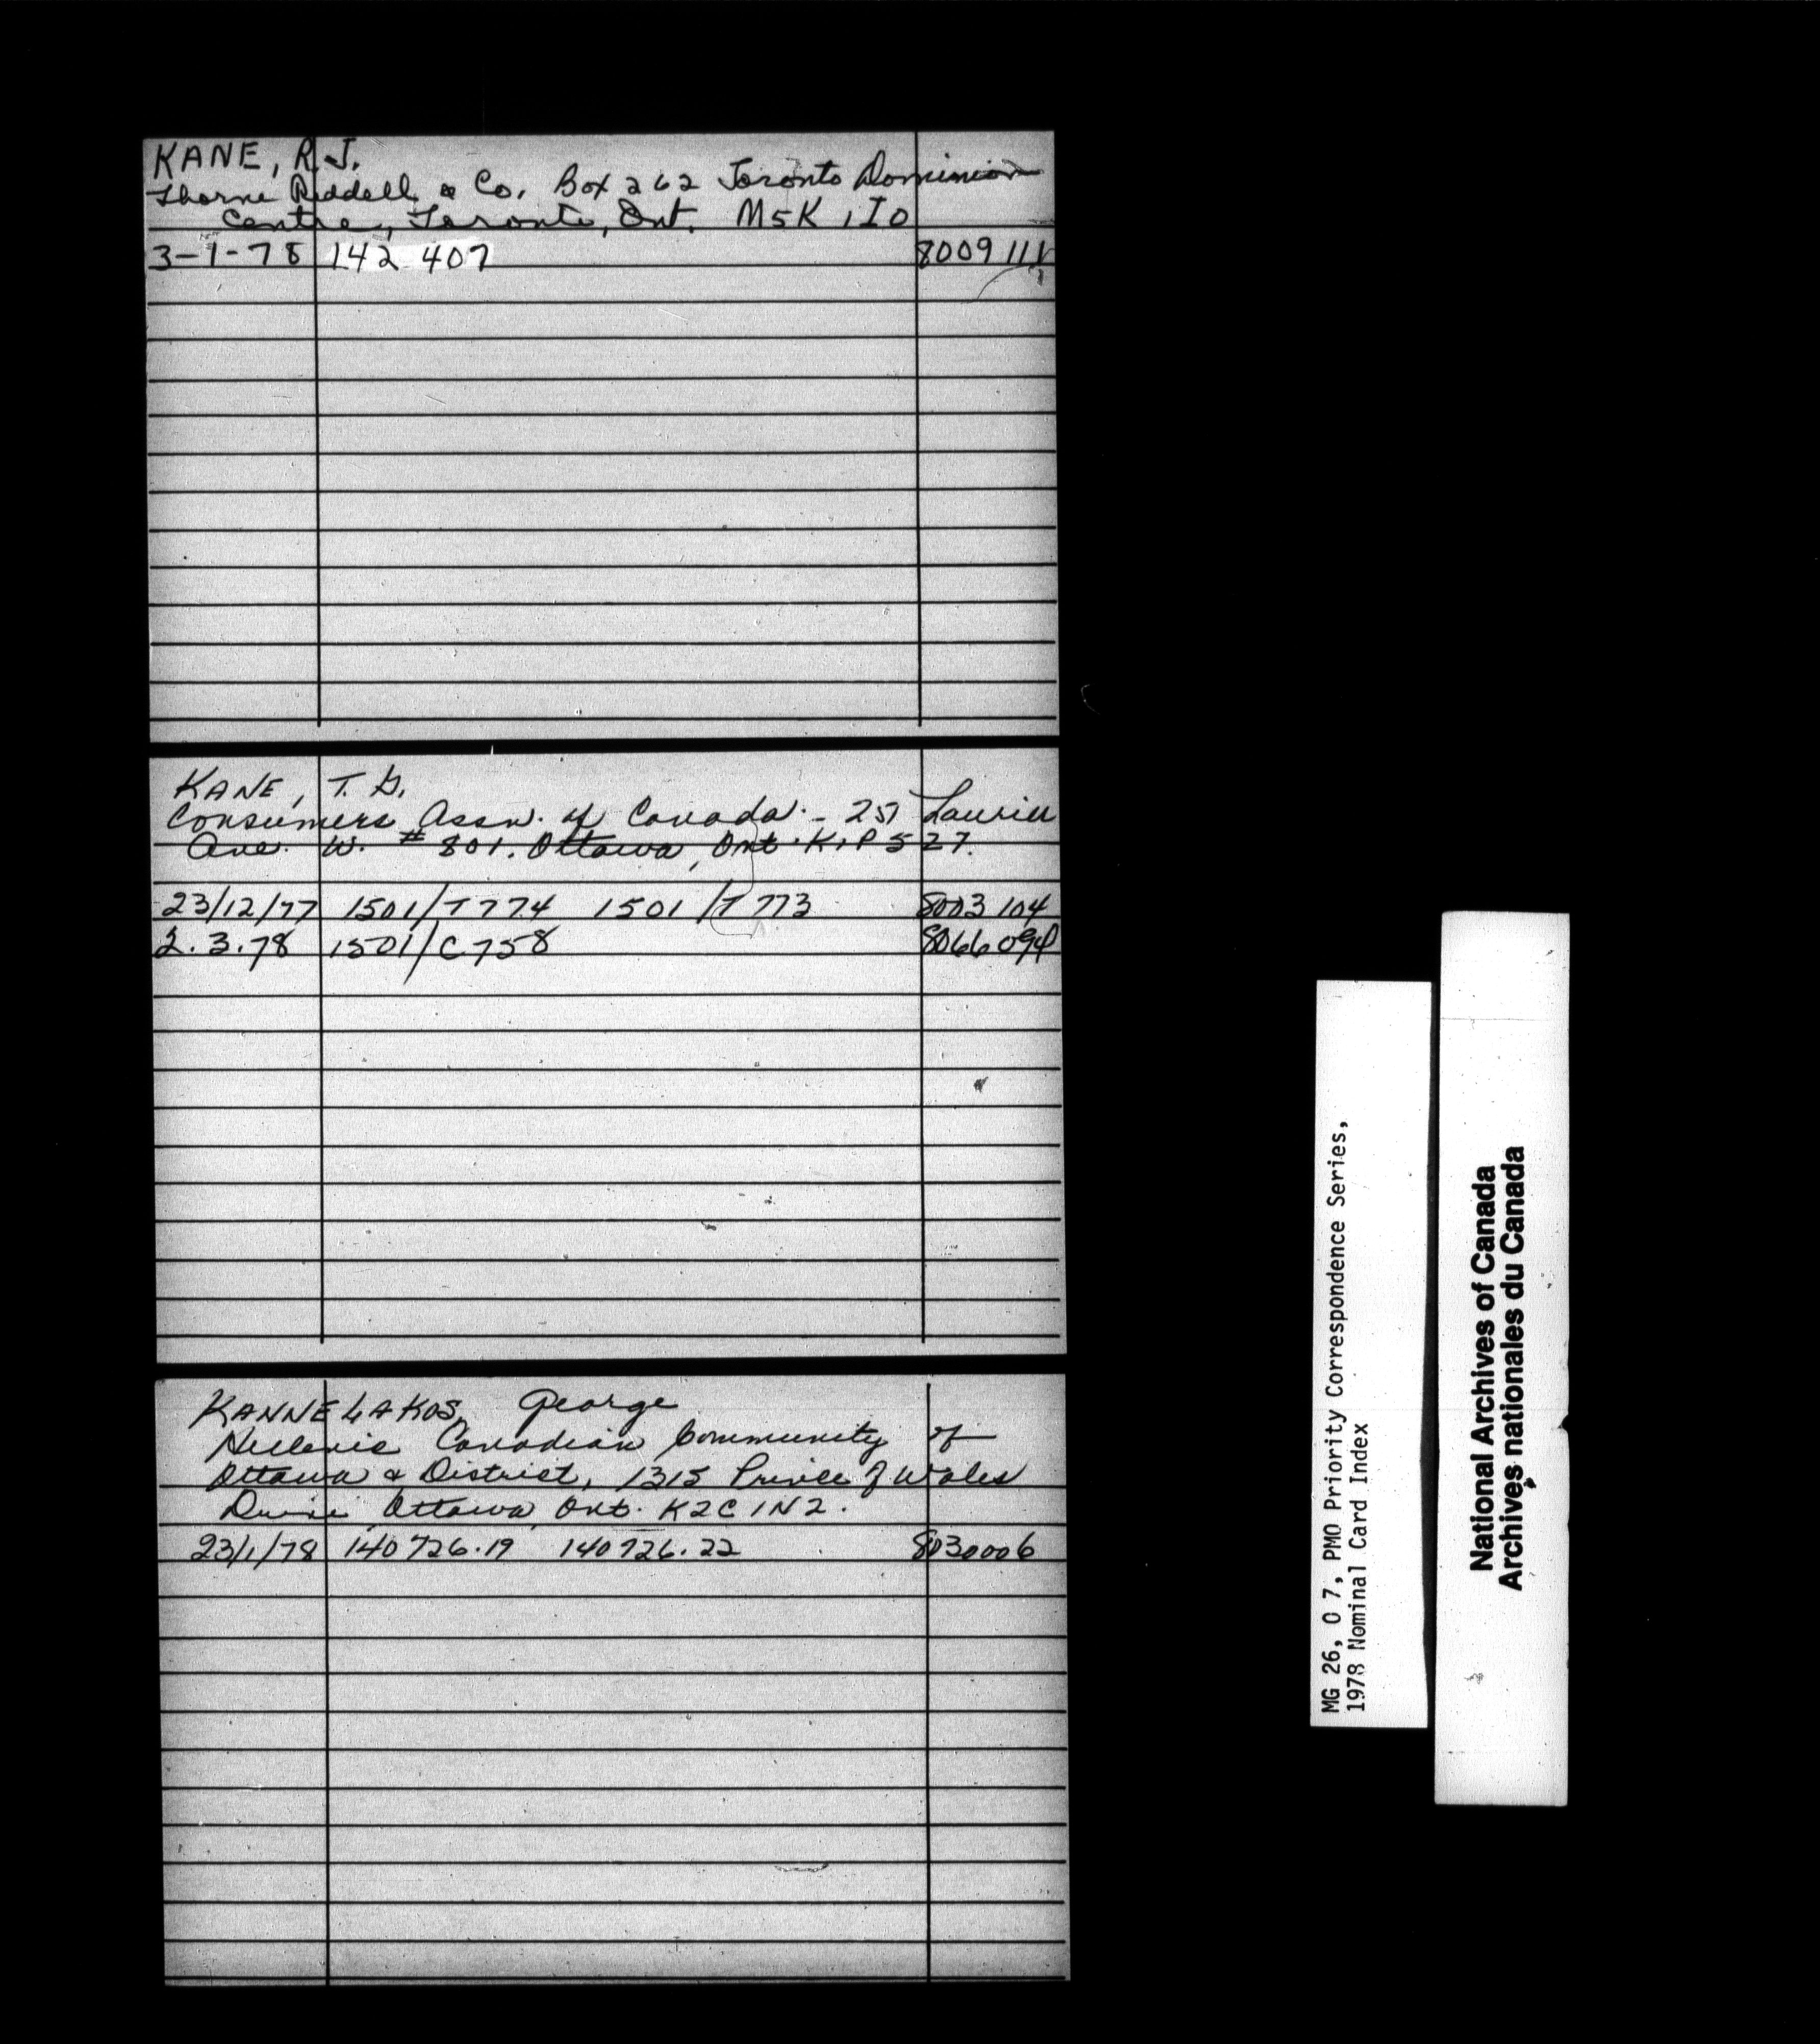 KANE, R.J.
Thorne Riddell & Co. Box 262 Toronto Dominion
Centre, Toronto, Ont. M5K 1I0
3-1-78 142 407 8009 111
KANE, T. G.
Consumers Assn. of Canada - 251 Laurier
Ave. W. # 801. Ottawa, Ont. K1P 5Z7.
23/12/77 1501/T774 1501/T773 8003 104
2.3.78 1501/C758 8066 094
KANNELAKOS, George
Hellenic Canadian Community of
Ottawa & District, 1315 Prince of Wales
Drive, Ottawa, Ont. K2C 1N2.
23/1/78 140726.19 140726.22 8030006
MG 26, O 7, PMO Priority Correspondence Series,
1978 Nominal Card Index
National Archives of Canada
Archives nationales du Canada